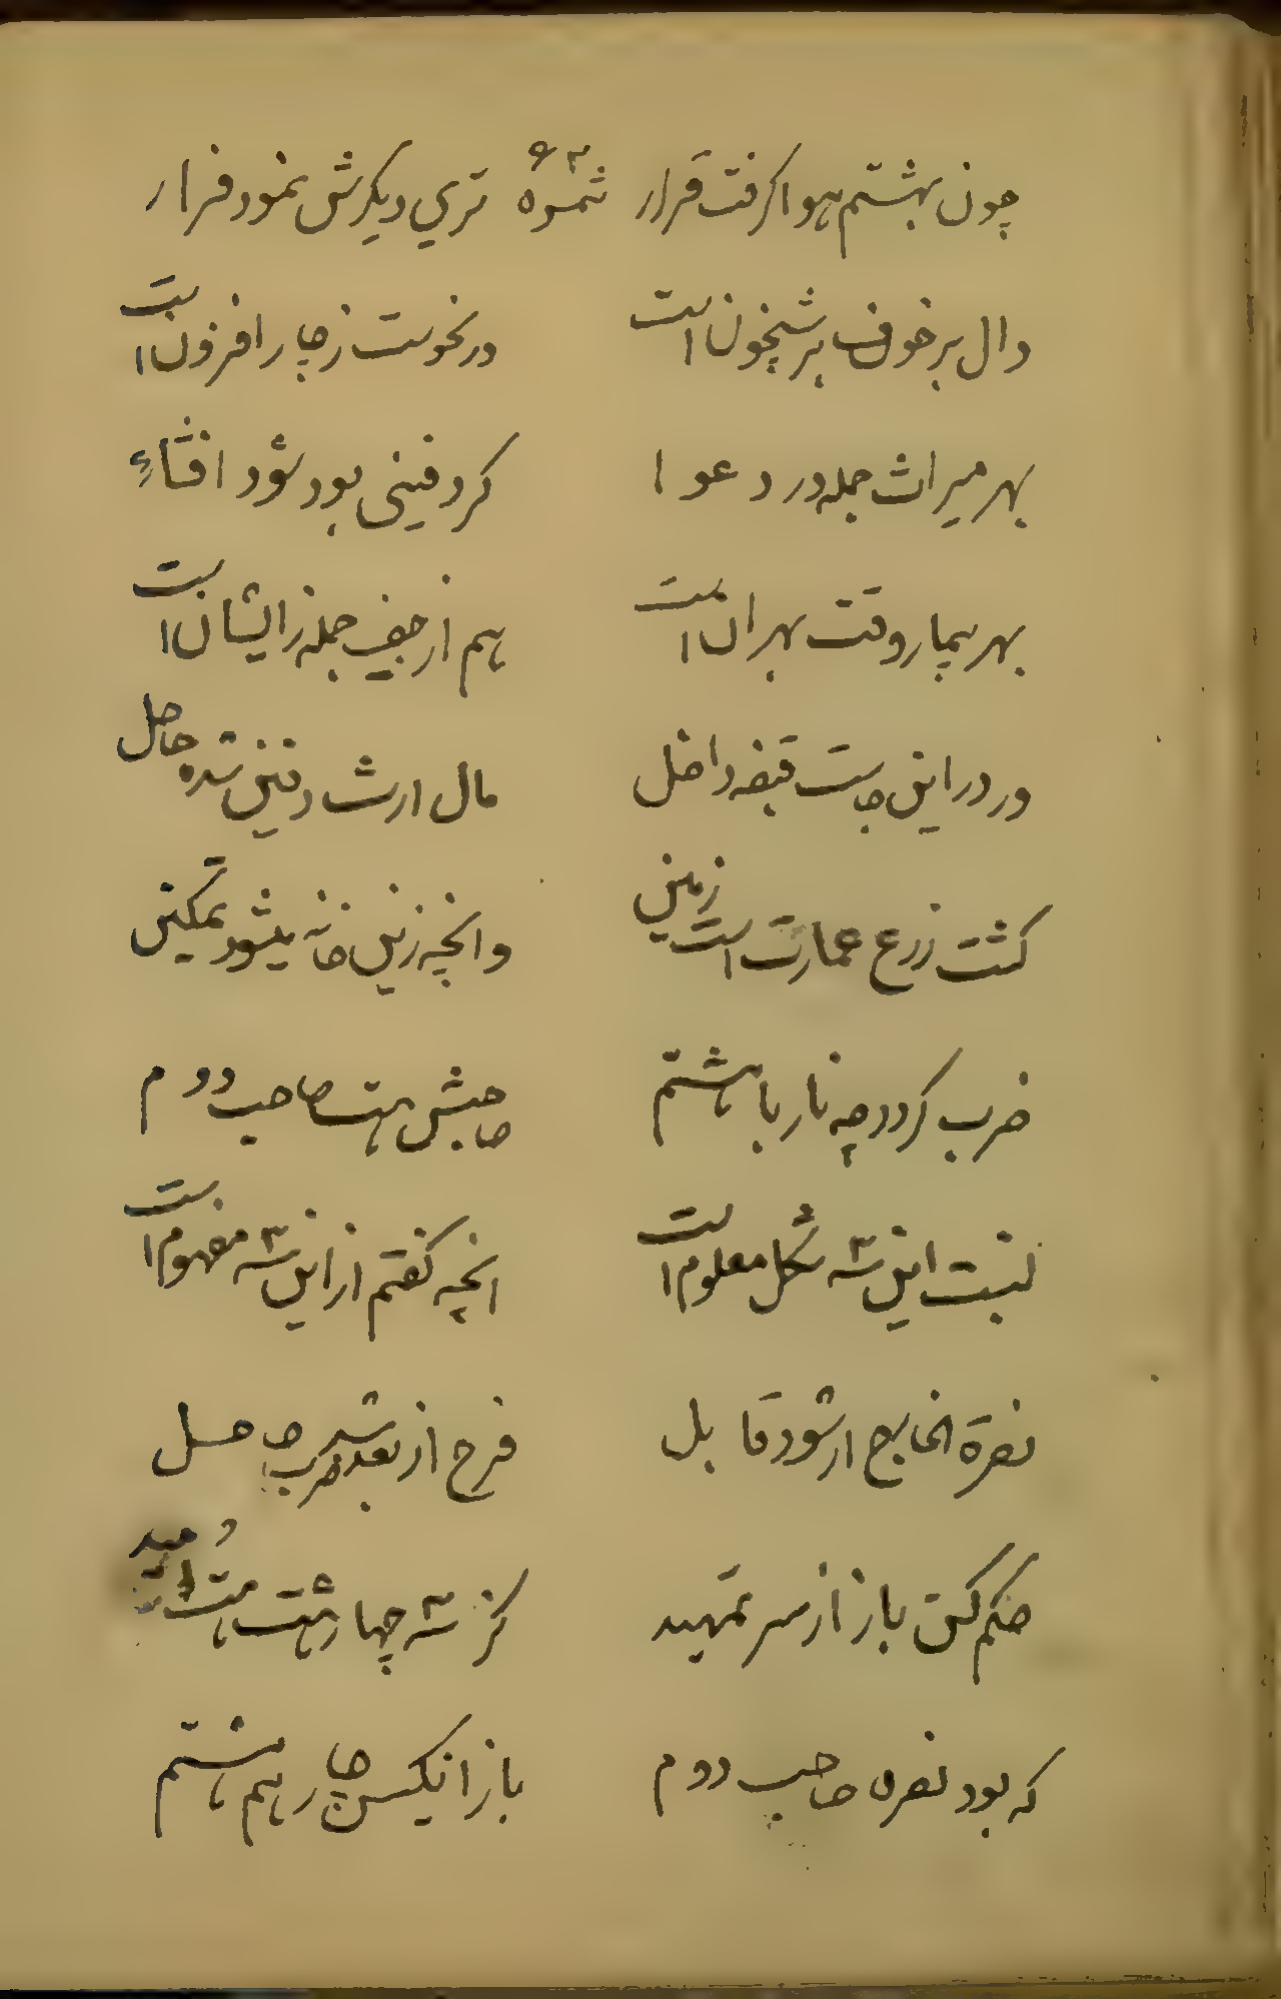 چون بهشتم هوا کرفت قرار ثمره ۶۳ تری دیکرش نمود فرار
دال بر خوف بر شبخون است ور نحوست ز چار افزون است
بهر میراث جمله در دعوا کر دفینی بود شود افشاء
بهر بیمار وقت بهران است هم از جمله ز ایشان است
ور در این جاست قبضه داخل مال ارث دفین شده حاصل
کشت زرع عمارت است زمین وانچه زین خانه میشود تمکین
ضرب کردد چه نار با هشتم صاحبش هست صاحب دوم
نسبت این سه شکل معلوم است انچه کفتم از این سه مفهوم است
نصرة الخارج ار شود قابل فرح از بعد ضرب شد حاصل
حکم کن باز از سر تمهید کز سه چهار هشت هست امید
که بود نصره صاحب دوم باز انکیس چار هم هشتم